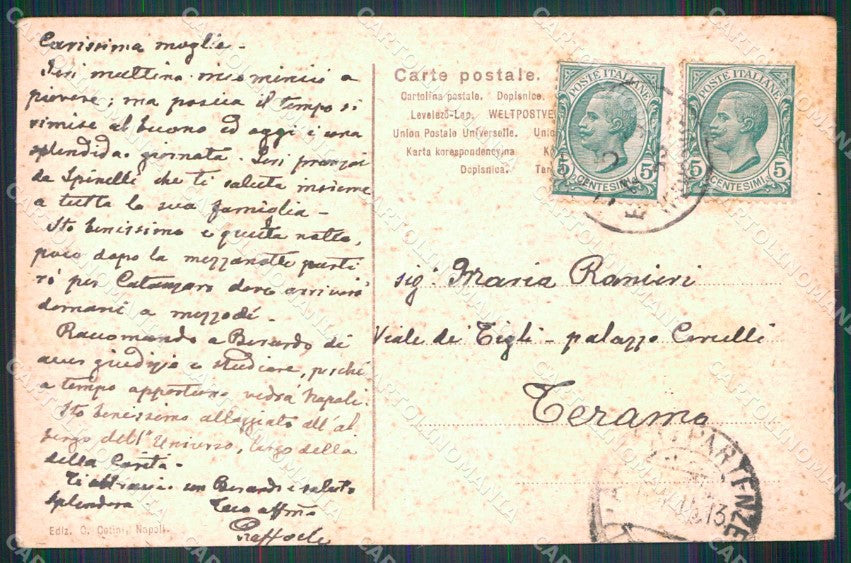 Carissima moglie -
Ieri mattina ricominciò a
piovere; ma poscia il tempo si
rimise al buono ed oggi è una
splendida giornata. Ieri pranzai
da Spinelli che ti saluta insieme
a tutta la sua famiglia -
Sto benissimo e questa notte,
poco dopo la mezzanotte parti
rò per Catanzaro dove arriverò
domani a mezzodì -
Raccomando a Berardo di
aver giudizio e studiare, perché
a tempo opportuno vedrà Napoli.
Sto benissimo alloggiato all'al
bergo dell'Universo, largo della
della Carità -
Ti abbraccio con Berardo e saluto
Splendora Tuo affmo
Raffaele
Ediz. G. Cotini, Napoli.
Carte postale.
Cartolina postale. Dopisnice.
Levelező-Lap. WELTPOSTVE
Union Postale Universelle. Unio
Karta korespondencyjna K
Dopisnica. Ter
POSTE ITALIANE
5 5
CENTESIMI
POSTE ITALIANE
5 5
CENTESIMI
Sigra Maria Ranieri
Viale dei Tigli - palazzo Cerulli
Teramo
PARTENZE
13
CARTOLINOMANIA